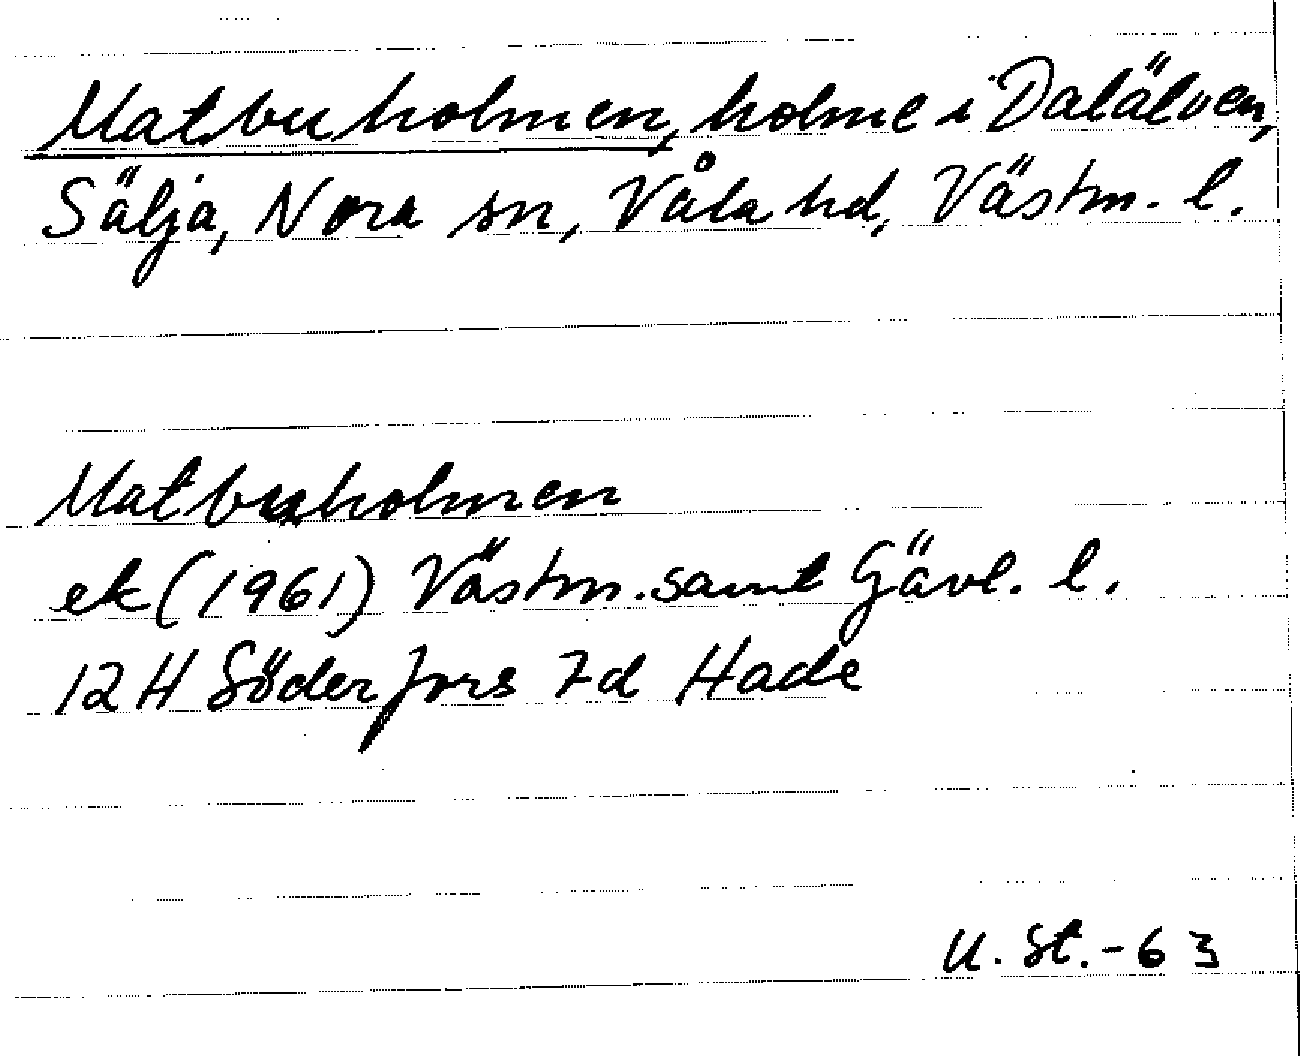 Matbuholmen, holme i Dalälven,
Sälja, Nora sn, Våla hd, Västm. l.
Matbuholmen
ek (1961) Västm. samt Gävl. l.
12 H Söderfors 7d Hade
U. St. - 63